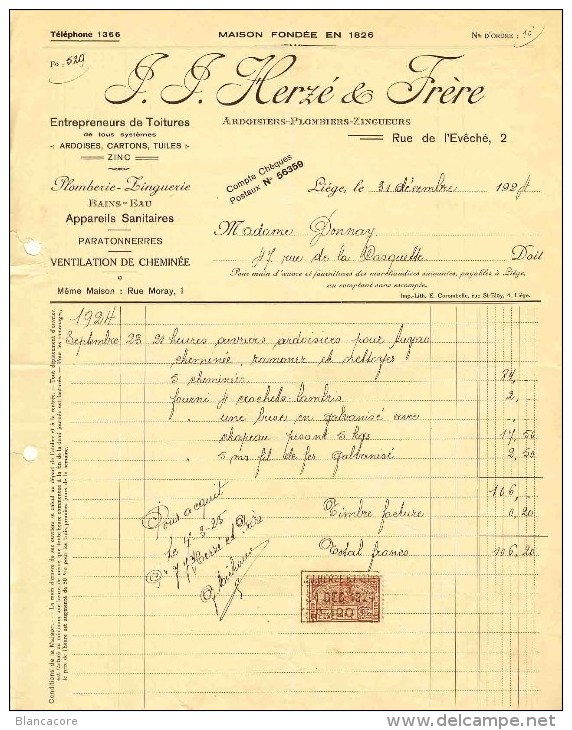 Téléphone 1366
MAISON FONDÉE EN 1826
No D'ORDRE: 16
Fo: 529
J. J. Herzé & Frère
Entrepreneurs de Toitures
de tous systèmes
ARDOISES, CARTONS, TUILES
ZINC
Plomberie-Zinguerie
BAINS-EAU
Appareils Sanitaires
PARATONNERRES
VENTILATION DE CHEMINÉE
Même Maison : Rue Moray, 1
ARDOISIERS-PLOMBIERS-ZINGUEURS
Rue de l'Evêché, 2
Compte Chèques
Postaux No 56359
Liège, le 31 décembre 1924
Madame Donnay,
47 rue de la Casquette Doit
Pour main d'œuvre et fournitures des marchandises suivantes, payables à Liège,
au comptant sans escompte.
Imp.-Lith. E. Carambelle, rue St-Eloy, 4, Liége.
1924
Septembre 23 21 heures ouvriers ardoisiers pour tuyau
cheminée, ramoner et nettoyer
5 cheminées. 84,-
fourni 4 crochets lambris 2,-
une buse en galvanisé avec
chapeau pesant 5 kgs 17,50
5 ms fil de fer galvanisé 2,50
106,-
Timbre facture 0,20
Total francs 106,20
Pour acquit
Le 4-3-25
J. J. Herzé et Frère
J. HERZÉ & FRÈRE
1 DEC 192
20
Conditions de la Maison.
Blancacore
www.delcampe.net